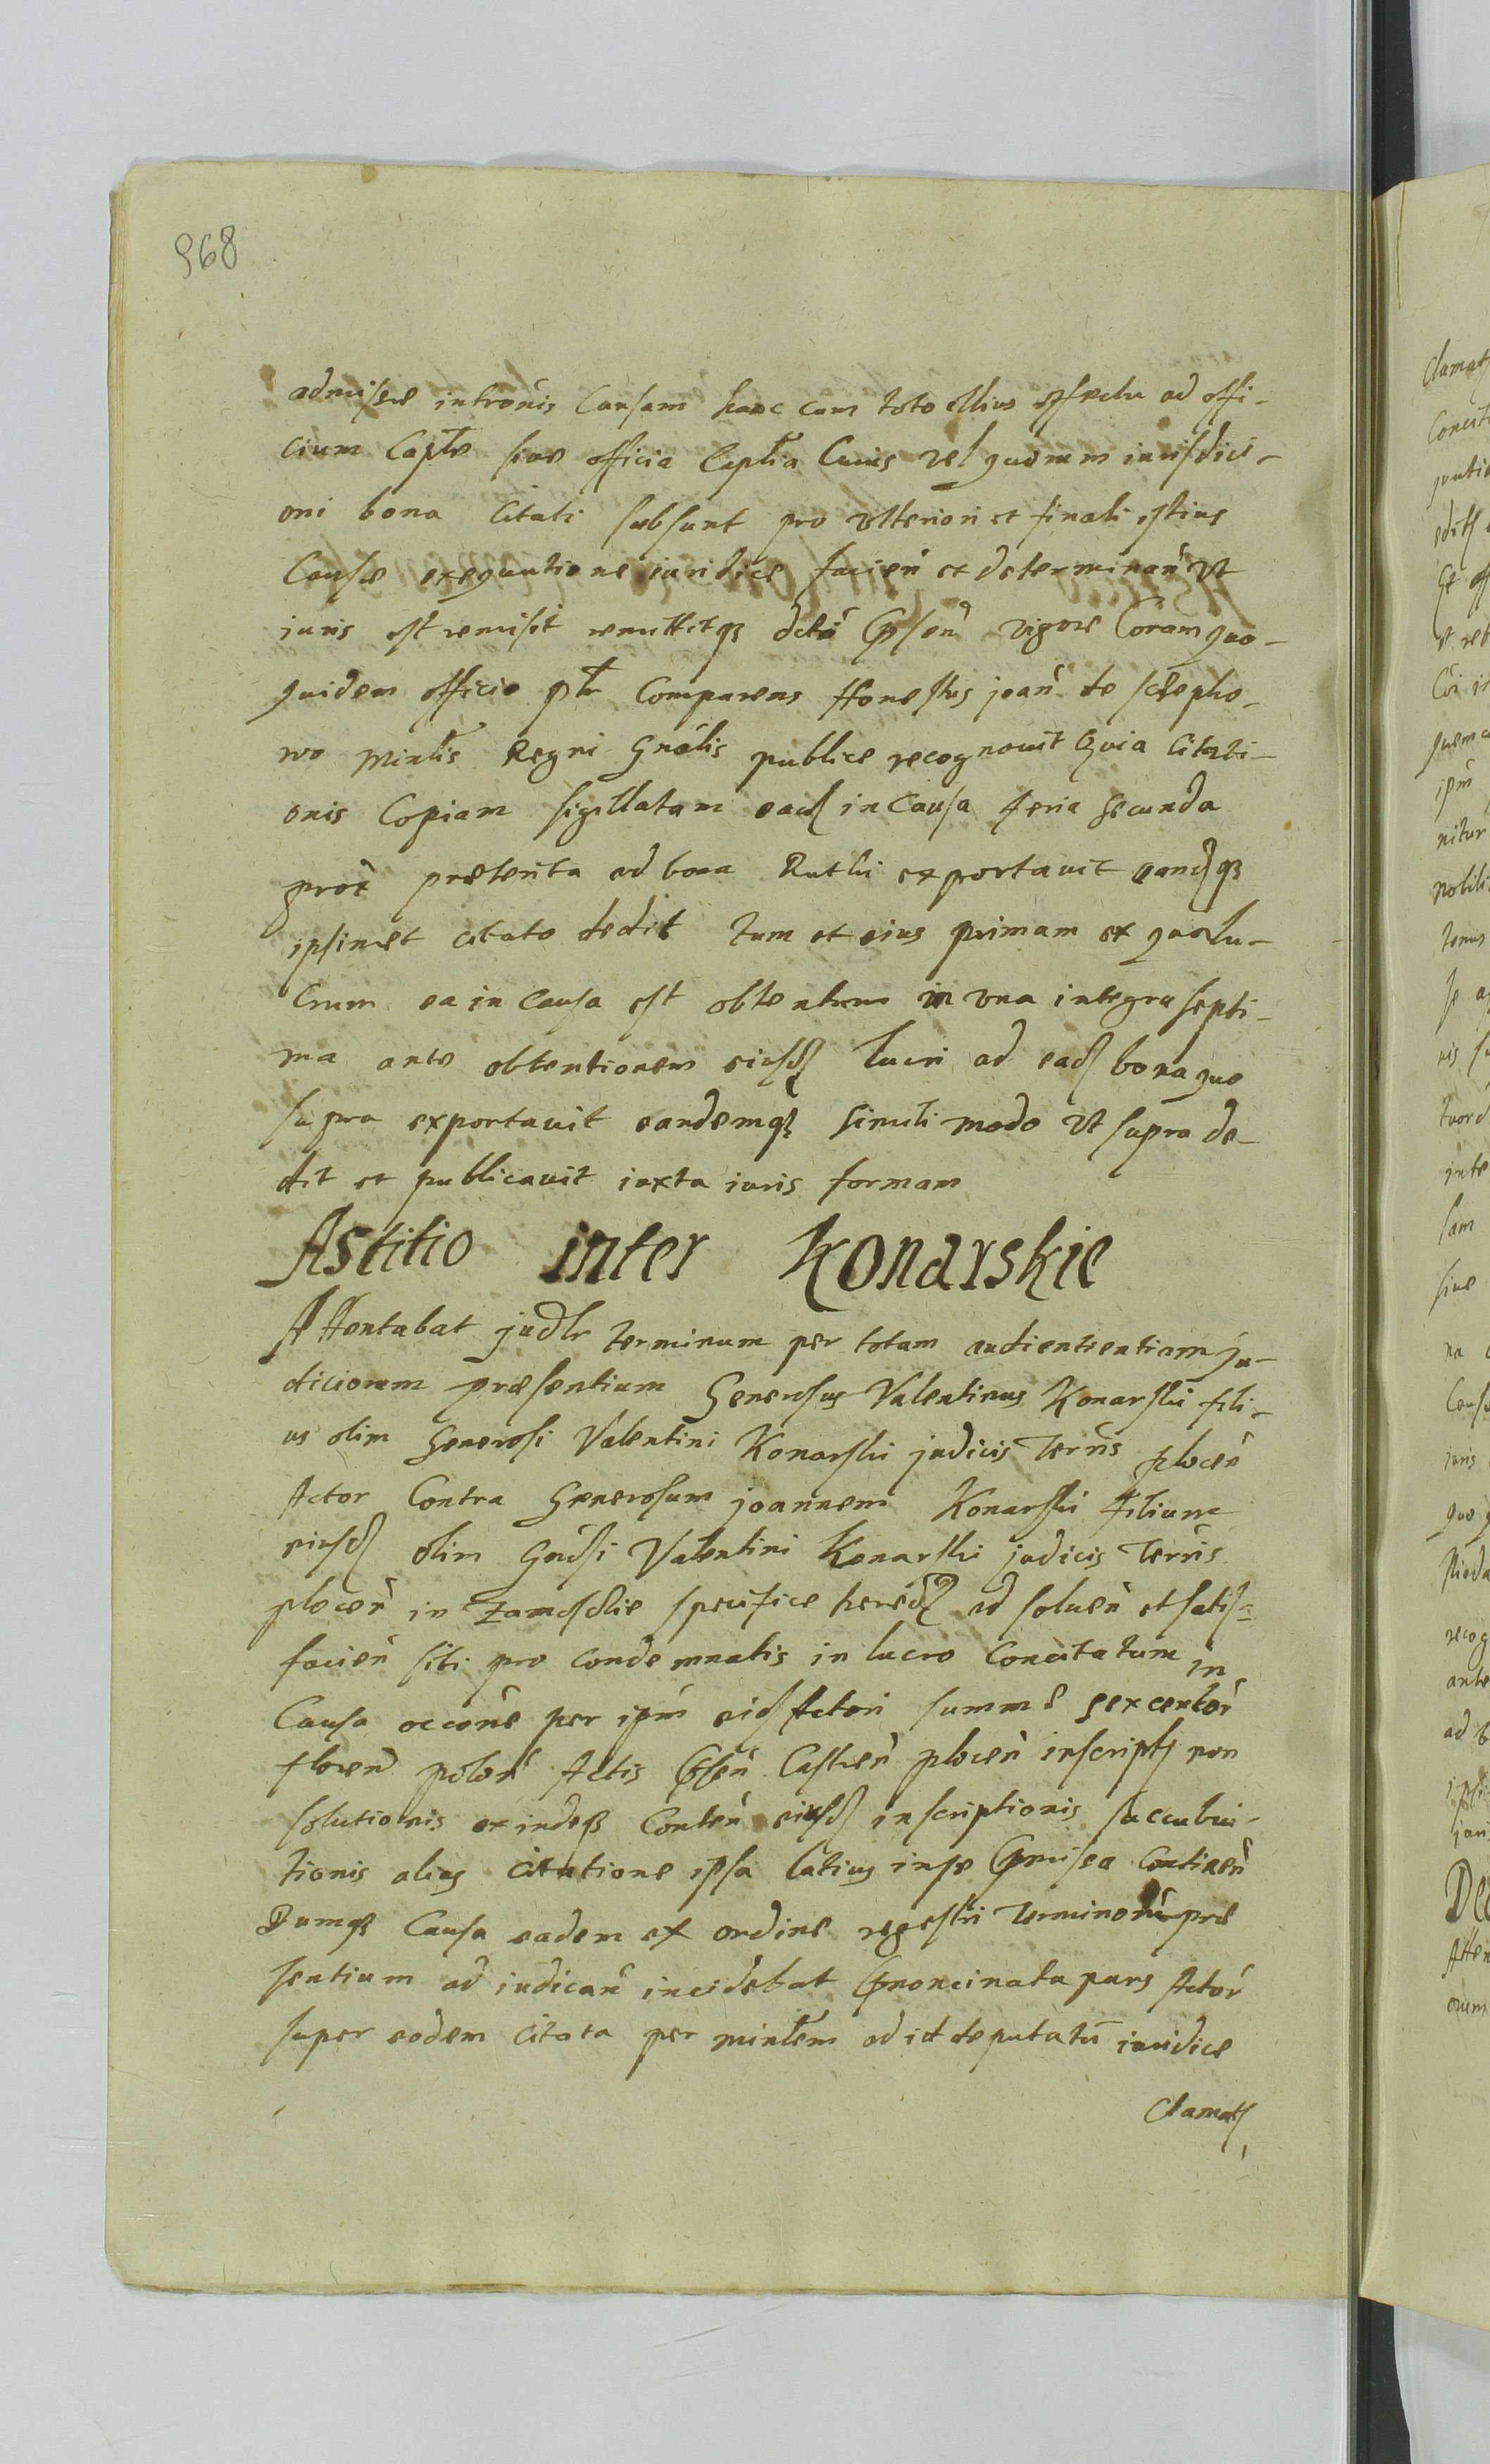 968
admissae intromis Causam hanc cum toto illius effectu ad offi-
cium Capte siue officia Captia Cuius vel quorum iurisdicti-
oni bona Citati subsunt pro vlteriori et finali istius
Causae exequutione iuridice facien et determinan vt
iuris est remisit remittitqz vigore Coram quo-
quidem officio ptr Comparens Honestus joan de
wo Minlis Regni Gnalis publice recognouit Quia Citati-
onis Copiam sigillatam ead in Causa feria secunda
prox praeterita ad bona exportauit eandqz
ipsimet citato dedit Tum et eius primam ex qua lu-
crum ea in Causa est obtentum in vna integra septi-
ma ante obtentionem eiusd lucri ad ead bona quo
supra exportauit eandemqz simili modo vt supra de-
dit et publicauit iuxta iuris formam
Astitio inter Konarskie
Attentabat judlr terminum per totam audientientiam ju-
diciorum praesentium Generosus Valentinus Konarski fili-
us olim Generosi Valentini Konarski judicis Terris plocen
Actor Contra Generosum joannem Konarski filium
eiusd olim Gndsi Valentini Konarski judicis Terris
plocen in specifice hered ad soluen et satis-
facien sibi pro condemnatis in lucro Concitatum in
Causa occone per ipm eid Actori summae sexcentor
floren polon Actis Castren plocen inscript non
solutionis exindeqz Conten eiusd inscriptionis succubui-
tionis alias citatione ipsa latius in se pmissa Continen
Dumqz Causa eadem ex ordine regestri Terminorum prae
sentium ad iudican incidebat pnoncinata pars Actor
super eodem Citata per minlem ad id deputatu iuridice
Clamat